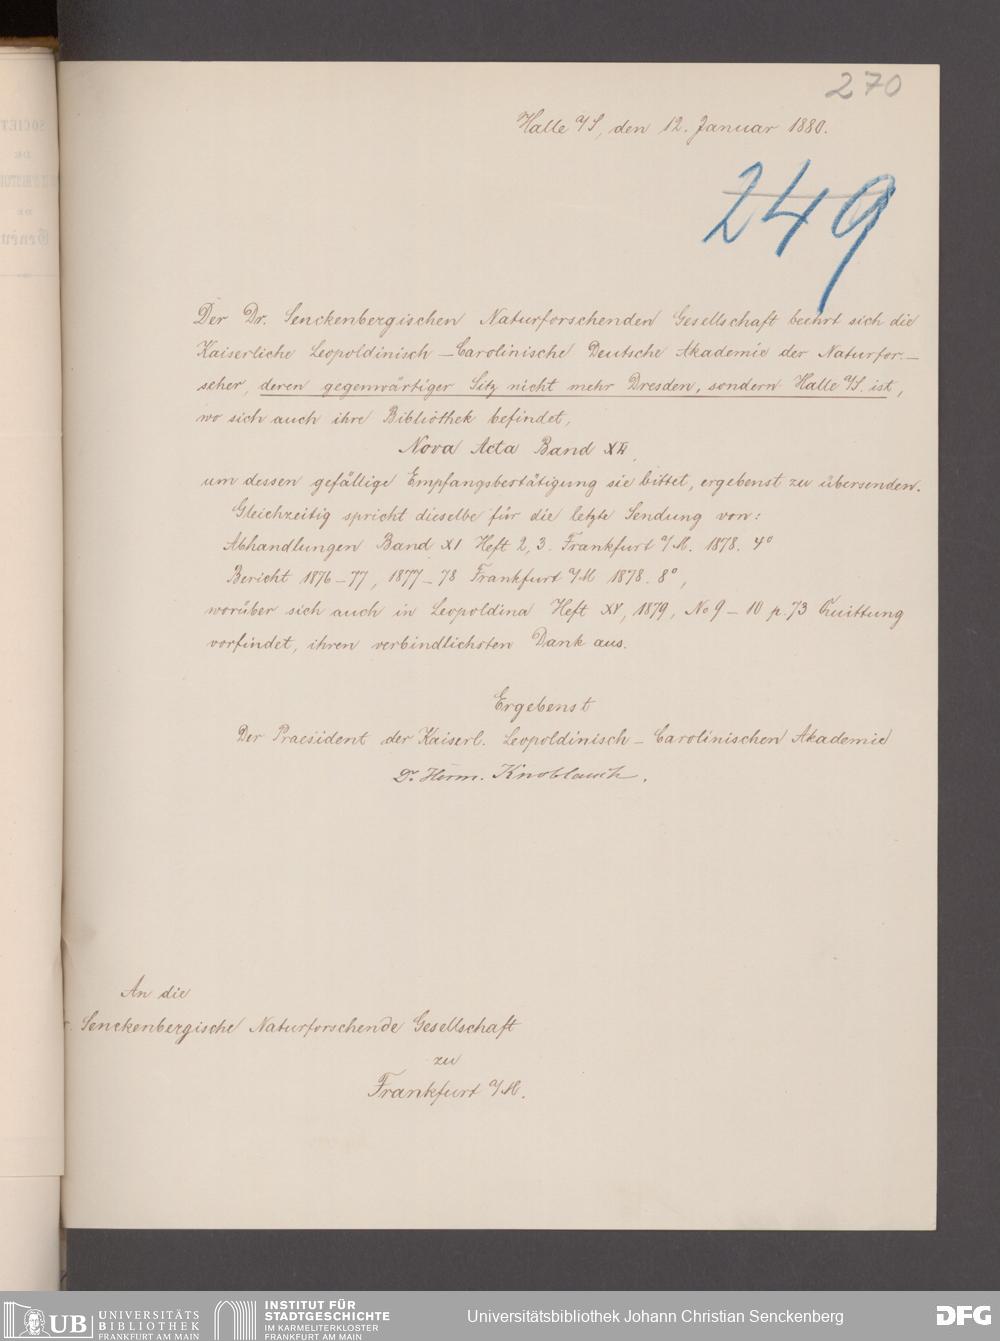 270
Halle a/S, den 12. Januar 1880.
249
Der Dr. Senckenbergischen Naturforschenden Gesellschaft beehrt sich die
Kaiserliche Leopoldinisch-Carolinische Deutsche Akademie der Naturfor-
scher, deren gegenwärtiger Sitz nicht mehr Dresden, sondern Halle a/S. ist,
wo sich auch ihre Bibliothek befindet,
Nova Acta Band
um dessen gefällige Empfangsbestätigung sie bittet, ergebenst zu übersenden.
Gleichzeitig spricht dieselbe für die letzte Sendung von:
Abhandlungen Band XI Heft 2, 3. Frankfurt a/M. 1878. 4°
Bericht 1876-77, 1877-78 Frankfurt a/M 1878. 8°,
worüber sich auch in Leopoldina Heft XV, 1879, No 9-10 p. 73 Quittung
vorfindet, ihren verbindlichsten Dank aus.
Ergebenst
Der Praesident der Kaiserl. Leopoldinisch-Carolinischen Akademie
Dr. Herm. Knoblauch.
An die
Senckenbergische Naturforschende Gesellschaft
zu
Frankfurt a/M.
UB UNIVERSITÄTS
BIBLIOTHEK
FRANKFURT AM MAIN
INSTITUT FÜR
STADTGESCHICHTE
IM KARMELITERKLOSTER
FRANKFURT AM MAIN
Universitätsbibliothek Johann Christian Senckenberg
DFG